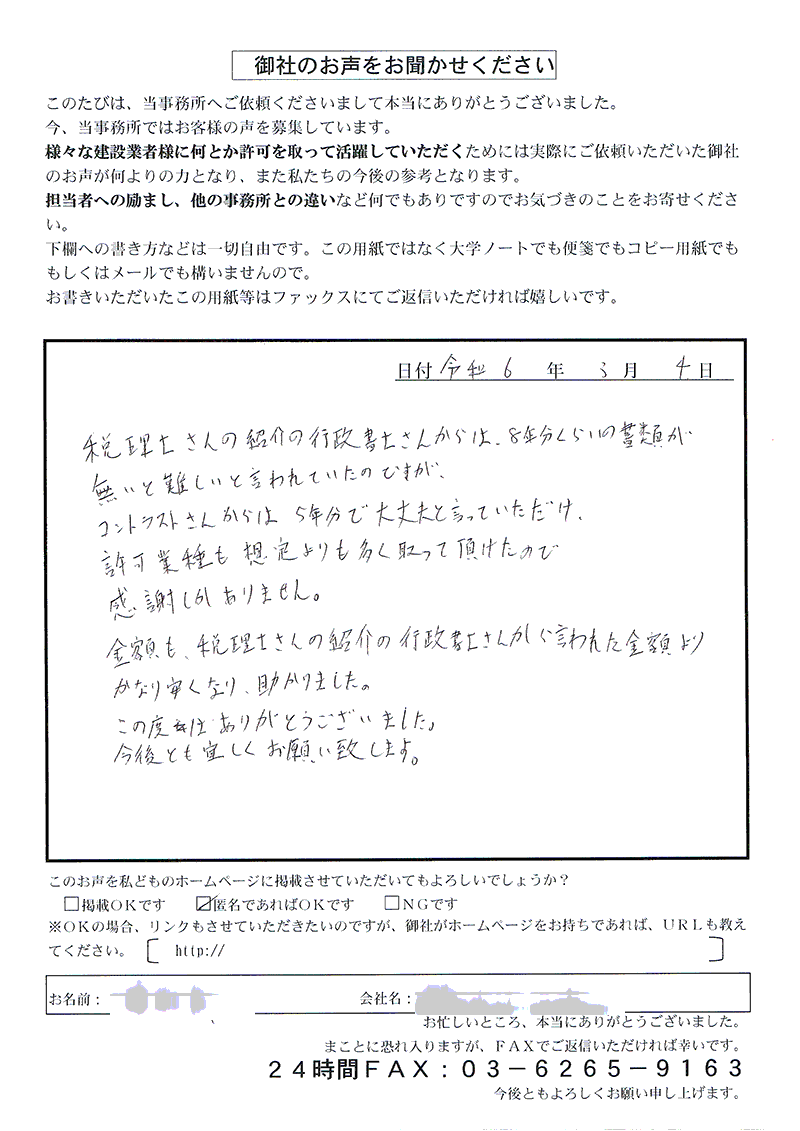 御社のお声をお聞かせください
このたびは、当事務所へご依頼くださいまして本当にありがとうございました。
今、当事務所ではお客様の声を募集しています。
様々な建設業者様に何とか許可を取って活躍していただくためには実際にご依頼いただいた御社
のお声が何よりの力となり、また私たちの今後の参考となります。
担当者への励まし、他の事務所との違いなど何でもありですのでお気づきのことをお寄せくださ
い。
下欄への書き方などは一切自由です。この用紙ではなく大学ノートでも便箋でもコピー用紙でも
もしくはメールでも構いませんので。
お書きいただいたこの用紙等はファックスにてご返信いただければ嬉しいです。
日付 令和 6 年 3 月 4 日
税理士さんの紹介の行政書士さんからは、8年分くらいの書類が
無いと難しいと言われていたのですが、
コントラストさんからは 5年分で大丈夫と言っていただけ、
許可業種も想定よりも多く取って頂けたので
感謝しかありません。
金額も、税理士さんの紹介の行政書士さんから言われた金額より
かなり安くなり、助かりました。
この度はありがとうございました。
今後とも宜しくお願い致します。
このお声を私どものホームページに掲載させていただいてもよろしいでしょうか？
□掲載ＯＫです ☑匿名であればＯＫです □ＮＧです
※ＯＫの場合、リンクもさせていただきたいのですが、御社がホームページをお持ちであれば、ＵＲＬも教え
てください。〔 http:// 〕
お名前： 会社名：
お忙しいところ、本当にありがとうございました。
まことに恐れ入りますが、ＦＡＸでご返信いただければ幸いです。
２４時間ＦＡＸ：０３－６２６５－９１６３
今後ともよろしくお願い申し上げます。